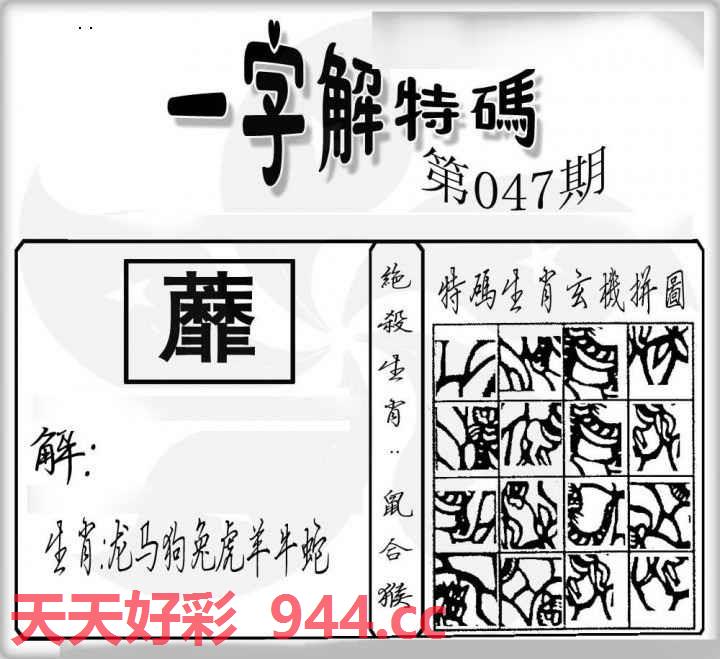 一字解特碼
第047期
蘼
解：
生肖:龙马狗兔虎羊牛蛇
絶殺生肖：鼠合猴
特碼生肖玄機拼圖
天天好彩 944.cc